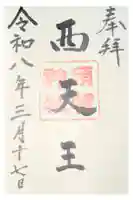 奉拝
西天王
令和八年三月十七日